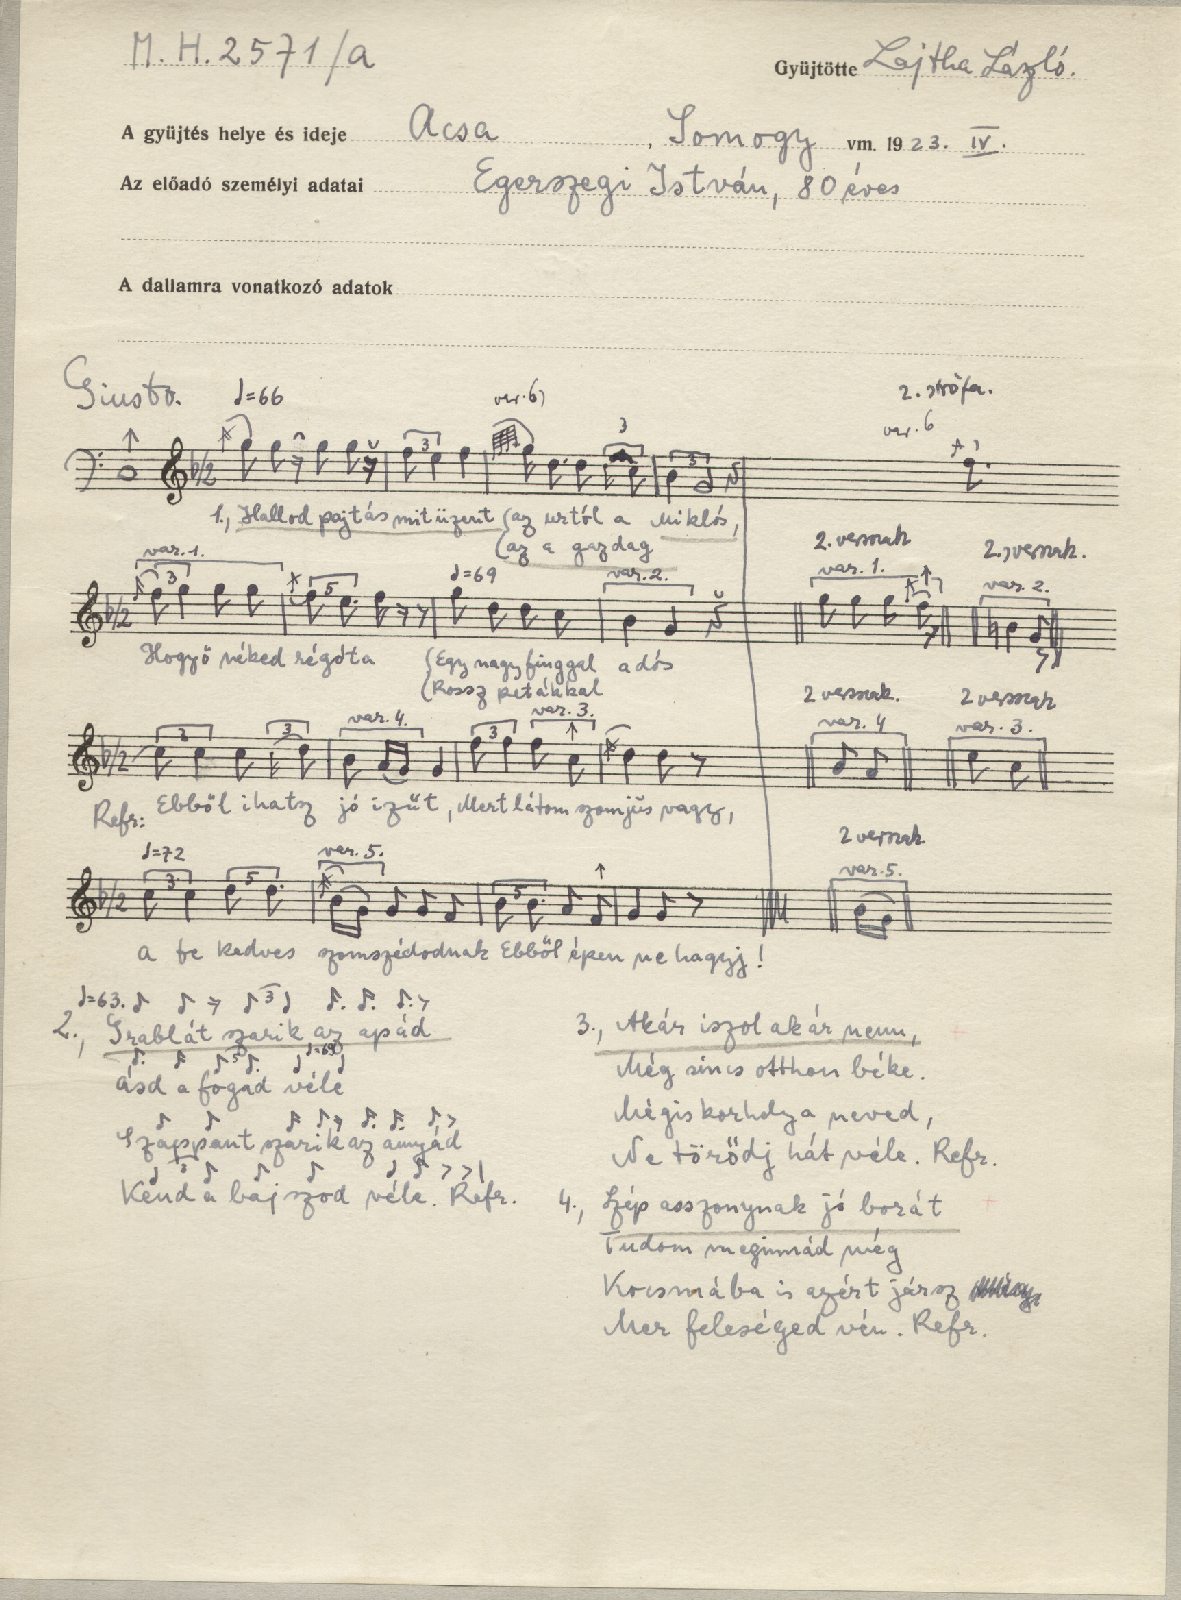 M. H. 2571/a
Gyüjtötte Lajtha László.
A gyüjtés helye és ideje Acsa, Somogy vm. 1923. IV.
Az előadó személyi adatai Egerszegi István, 80 éves
A dallamra vonatkozó adatok
Giusto. ♩=66 var. 6) 2. strófa.
var. 6
3 3 3
1., Hallod pajtás mit üzent (az urtól a Miklós,
(az a gazdag
2. versszak 2. versszak.
var. 1. ♩=69 var. 2. var. 1. var. 2.
3 5
Hogyő néked régóta (Egy nagy finggal adós
(Rossz petákkal
2 versszak. 2 versszak
var. 4. var. 3. var. 4 var. 3.
2 3 3
Refr: Ebből ihatsz jó izüt, Mert látom szomjús vagy,
2 versszak
♩=72 var. 5. var. 5.
3 5 5
A te kedves szomszédodnak Ebből épen ne hagyj!
♩=63. 3
2., Grablát szarik az apád
5 ♩=69
ásd a fogad véle
Szappant szarik az annyád
Kend a bajszod véle. Refr.
3., Akár iszol akár nem,
Még sincs otthon béke.
Mégis korholya neved,
Ne törődj hát véle. Refr.
4., Szép asszonynak jó borát
Tudom meginnád még
Kocsmába is azért jársz
Mer feleséged vén. Refr.